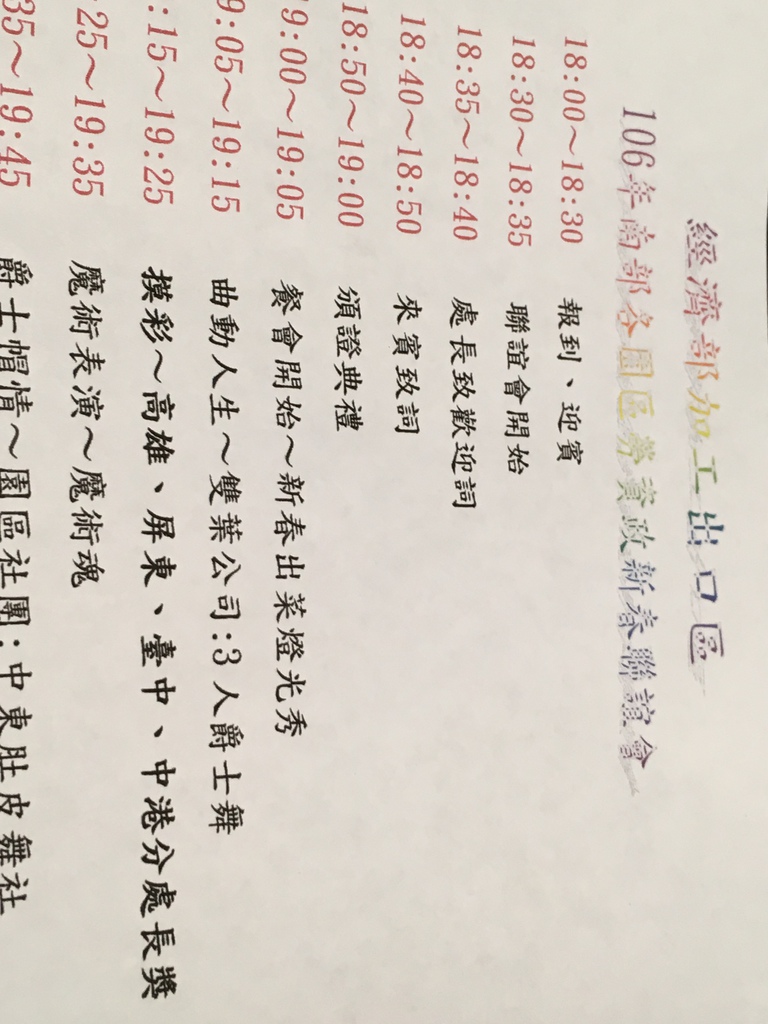 經濟部加工出口區
106年南部各園區勞資政新春聯誼會
18:00～18:30 報到、迎賓
18:30～18:35 聯誼會開始
18:35～18:40 處長致歡迎詞
18:40～18:50 來賓致詞
18:50～19:00 頒證典禮
9:00～19:05 餐會開始～新春出菜燈光秀
9:05～19:15 曲動人生～雙葉公司:3人爵士舞
:15～19:25 摸彩～高雄、屏東、臺中、中港分處長獎
:25～19:35 魔術表演～魔術魂
35～19:45 爵士帽情～園區社團:中東肚皮舞社